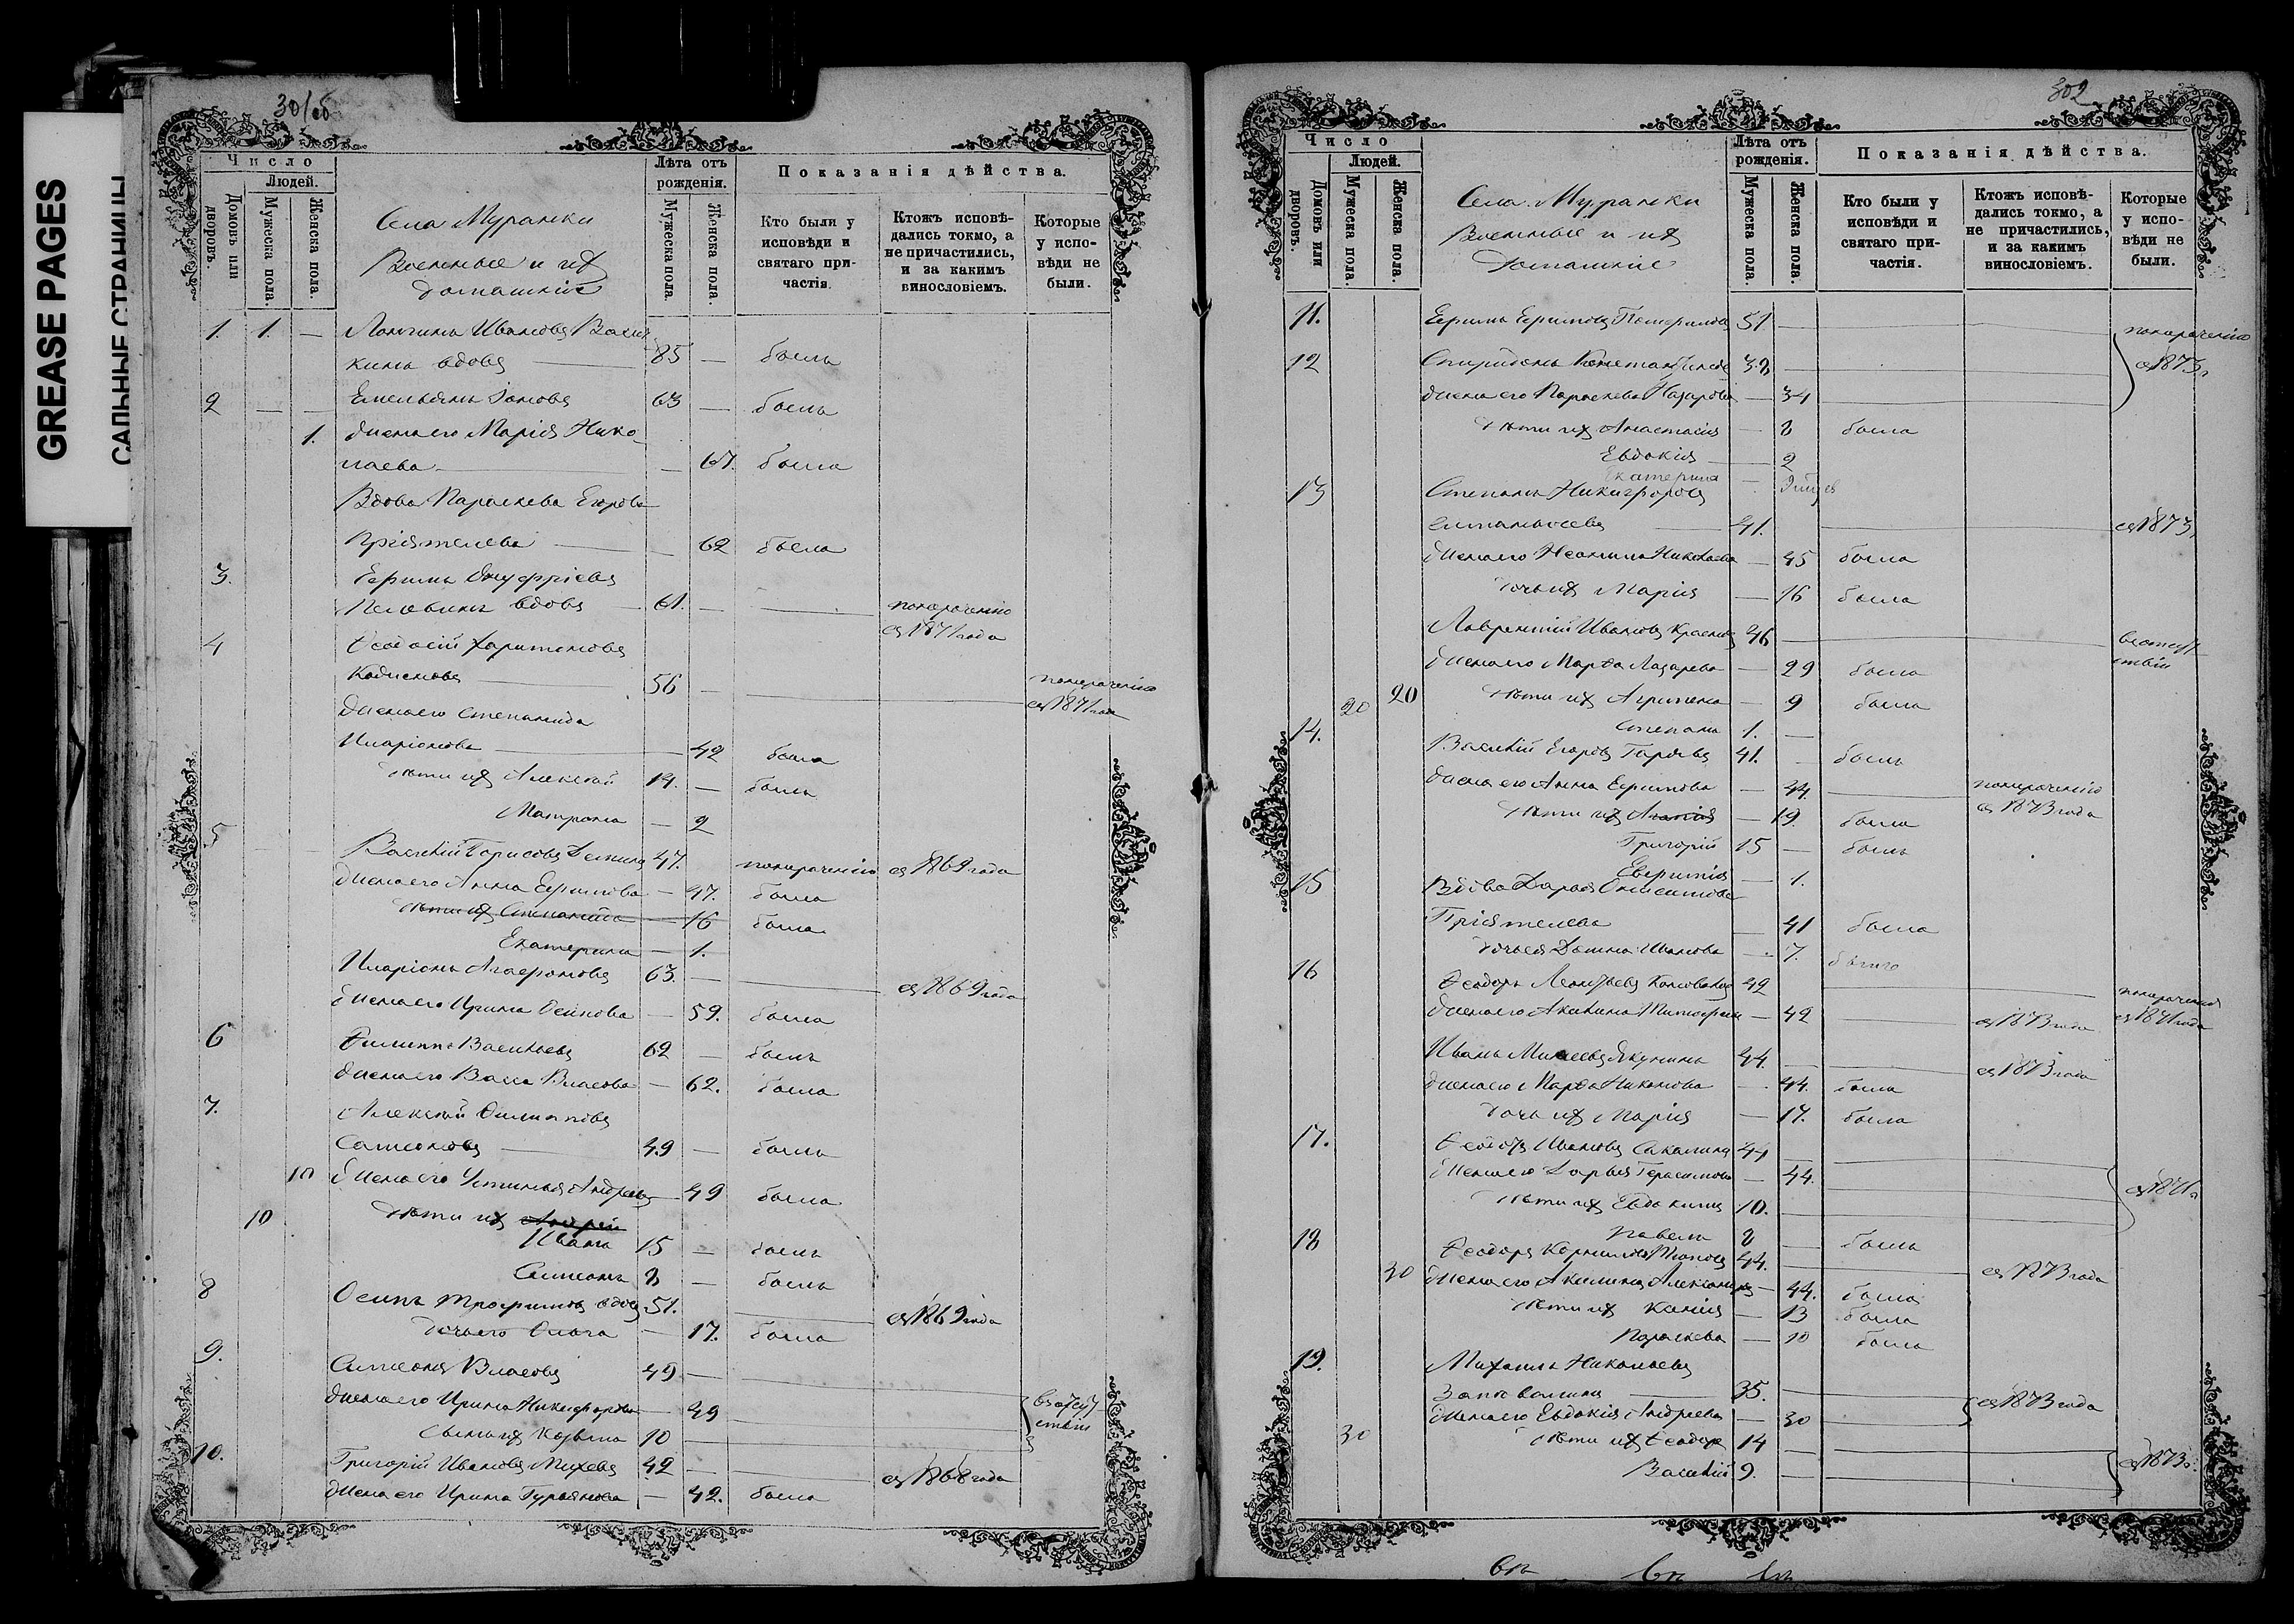 GREASE PAGES
САЛЬНЫЕ СТРАНИЦЫ
301об
Число
Домовъ или дворовъ.
Людей.
Мужеска пола.
Женска пола.
Села Муранки
Военные и их
домашние
Лѣта отъ рожденія.
Мужеска пола.
Женска пола.
Показанія дѣйства.
Кто были у
исповѣди и
святаго при-
частія.
Ктожъ исповѣ-
дались токмо, а
не причастились,
и за какимъ
винословіемъ.
Которые
у испо-
вѣди не
были.
1. 1. — Иванов
кинъ вдовъ — 85 — былъ
2 — — 63 — былъ
1. жена его Марія Нико-
лаева — 67. была
Вдова Параскева Егорова
Пріятелева — 62 была
3. Ефимъ Онуфріевъ
вдовъ — 61. — — понерачению
съ 1871 года
4 Ѳеодосій Харитоновъ
56 — — понерачению
съ 1871 года
жена его Степанида
Иларіонова — 42 была
дѣти их Алексей 14. — былъ
Матрона — 2
5 Василій Борисовъ 47. понерачению съ 1869 года
жена его Анна Ефимова — 47. была
дѣти их Степанида — 16 была
Екатерина — 1.
Иларіонъ Агафоновъ 63. — — съ 1869 года
жена его Ирина Осипова — 59. была
6 Филиппъ Васильевъ 62 — былъ
жена его Васса Власова — 62. была
7. Алексей Филиповъ
Самсоновъ — 49 — былъ
10 жена его Устинья Андреева — 49 была
10 дѣти их Андрей
Иванъ 15 — былъ
Симеонъ 8 — былъ
8 Осипъ Трофимовъ вдовъ 51. — съ 1869 года
дочь его Ольга — 17. была
9. Симеонъ Власовъ 49 —
жена его Ирина Никифорова — 49 — в отсут-
ствии
сынъ их Козьма 10 —
10. Григорій Ивановъ Михеевъ 42 — — съ 1868 года
жена его Ирина Гурьянова — 42. была
302
Число
Домовъ или дворовъ.
Людей.
Мужеска пола.
Женска пола.
Села Муранки
Военные и их
домашние
Лѣта отъ рожденія.
Мужеска пола.
Женска пола.
Показанія дѣйства.
Кто были у
исповѣди и
святаго при-
частія.
Ктожъ исповѣ-
дались токмо, а
не причастились,
и за какимъ
винословіемъ.
Которые
у испо-
вѣди не
были.
11. Ефимъ Ефимовъ 51 — — понерачению
12 Спиридонъ Константиновъ 38 — — съ 1873 г
жена его Параскева Назарова — 34 —
дѣти их Анастасія — 8 была
Евдокія — 2
Екатерина —
13 Степанъ Никифоровъ
41. — съ 1873
жена его Неонила Николаева — 45 была
дочь их Марія — 16 была
Лаврентій Ивановъ 46 — — в отсут-
ствии
жена его Марѳа Лазарева — 29 была
20 20 дѣти их Агрипена — 9 была
Степанъ 1. —
14. Василій Егоровъ 41. — былъ
жена его Анна Ефимова — 44. — понерачению
съ 1873 года
дѣти их Агапія — 19. была
Григорій 15 — былъ
Евфимія — 1.
15 Вдова Дарья
Пріятелева — 41 была
дочь ея Домна Иванова — 7.
16 Ѳеодоръ 42 — понерачению
жена его Акилина — 42 — съ 1873 года съ 1871 года
Иванъ Якунинъ 44. — — съ 1873 года
жена его Марѳа Никонова — 44. была
дочь их Марія — 17. была
17. Ѳеодоръ Ивановъ 44 —
жена его Дарья Герасимова — 44. — съ 1871 г
дѣти их Евдокимъ 10. —
Павелъ 8 — былъ
18 Ѳеодоръ Корниловъ 44. — съ 1873 года
30 жена его Акилина — 44. была
дѣти их Ксенія — 13 была
Параскева — 10 была
19. Михаилъ Николаевъ
35. — съ 1873 года
жена его Евдокія Андреева — 30 —
30 дѣти их Ѳеодоръ 14 — съ 1873 г.
Василій 9. —